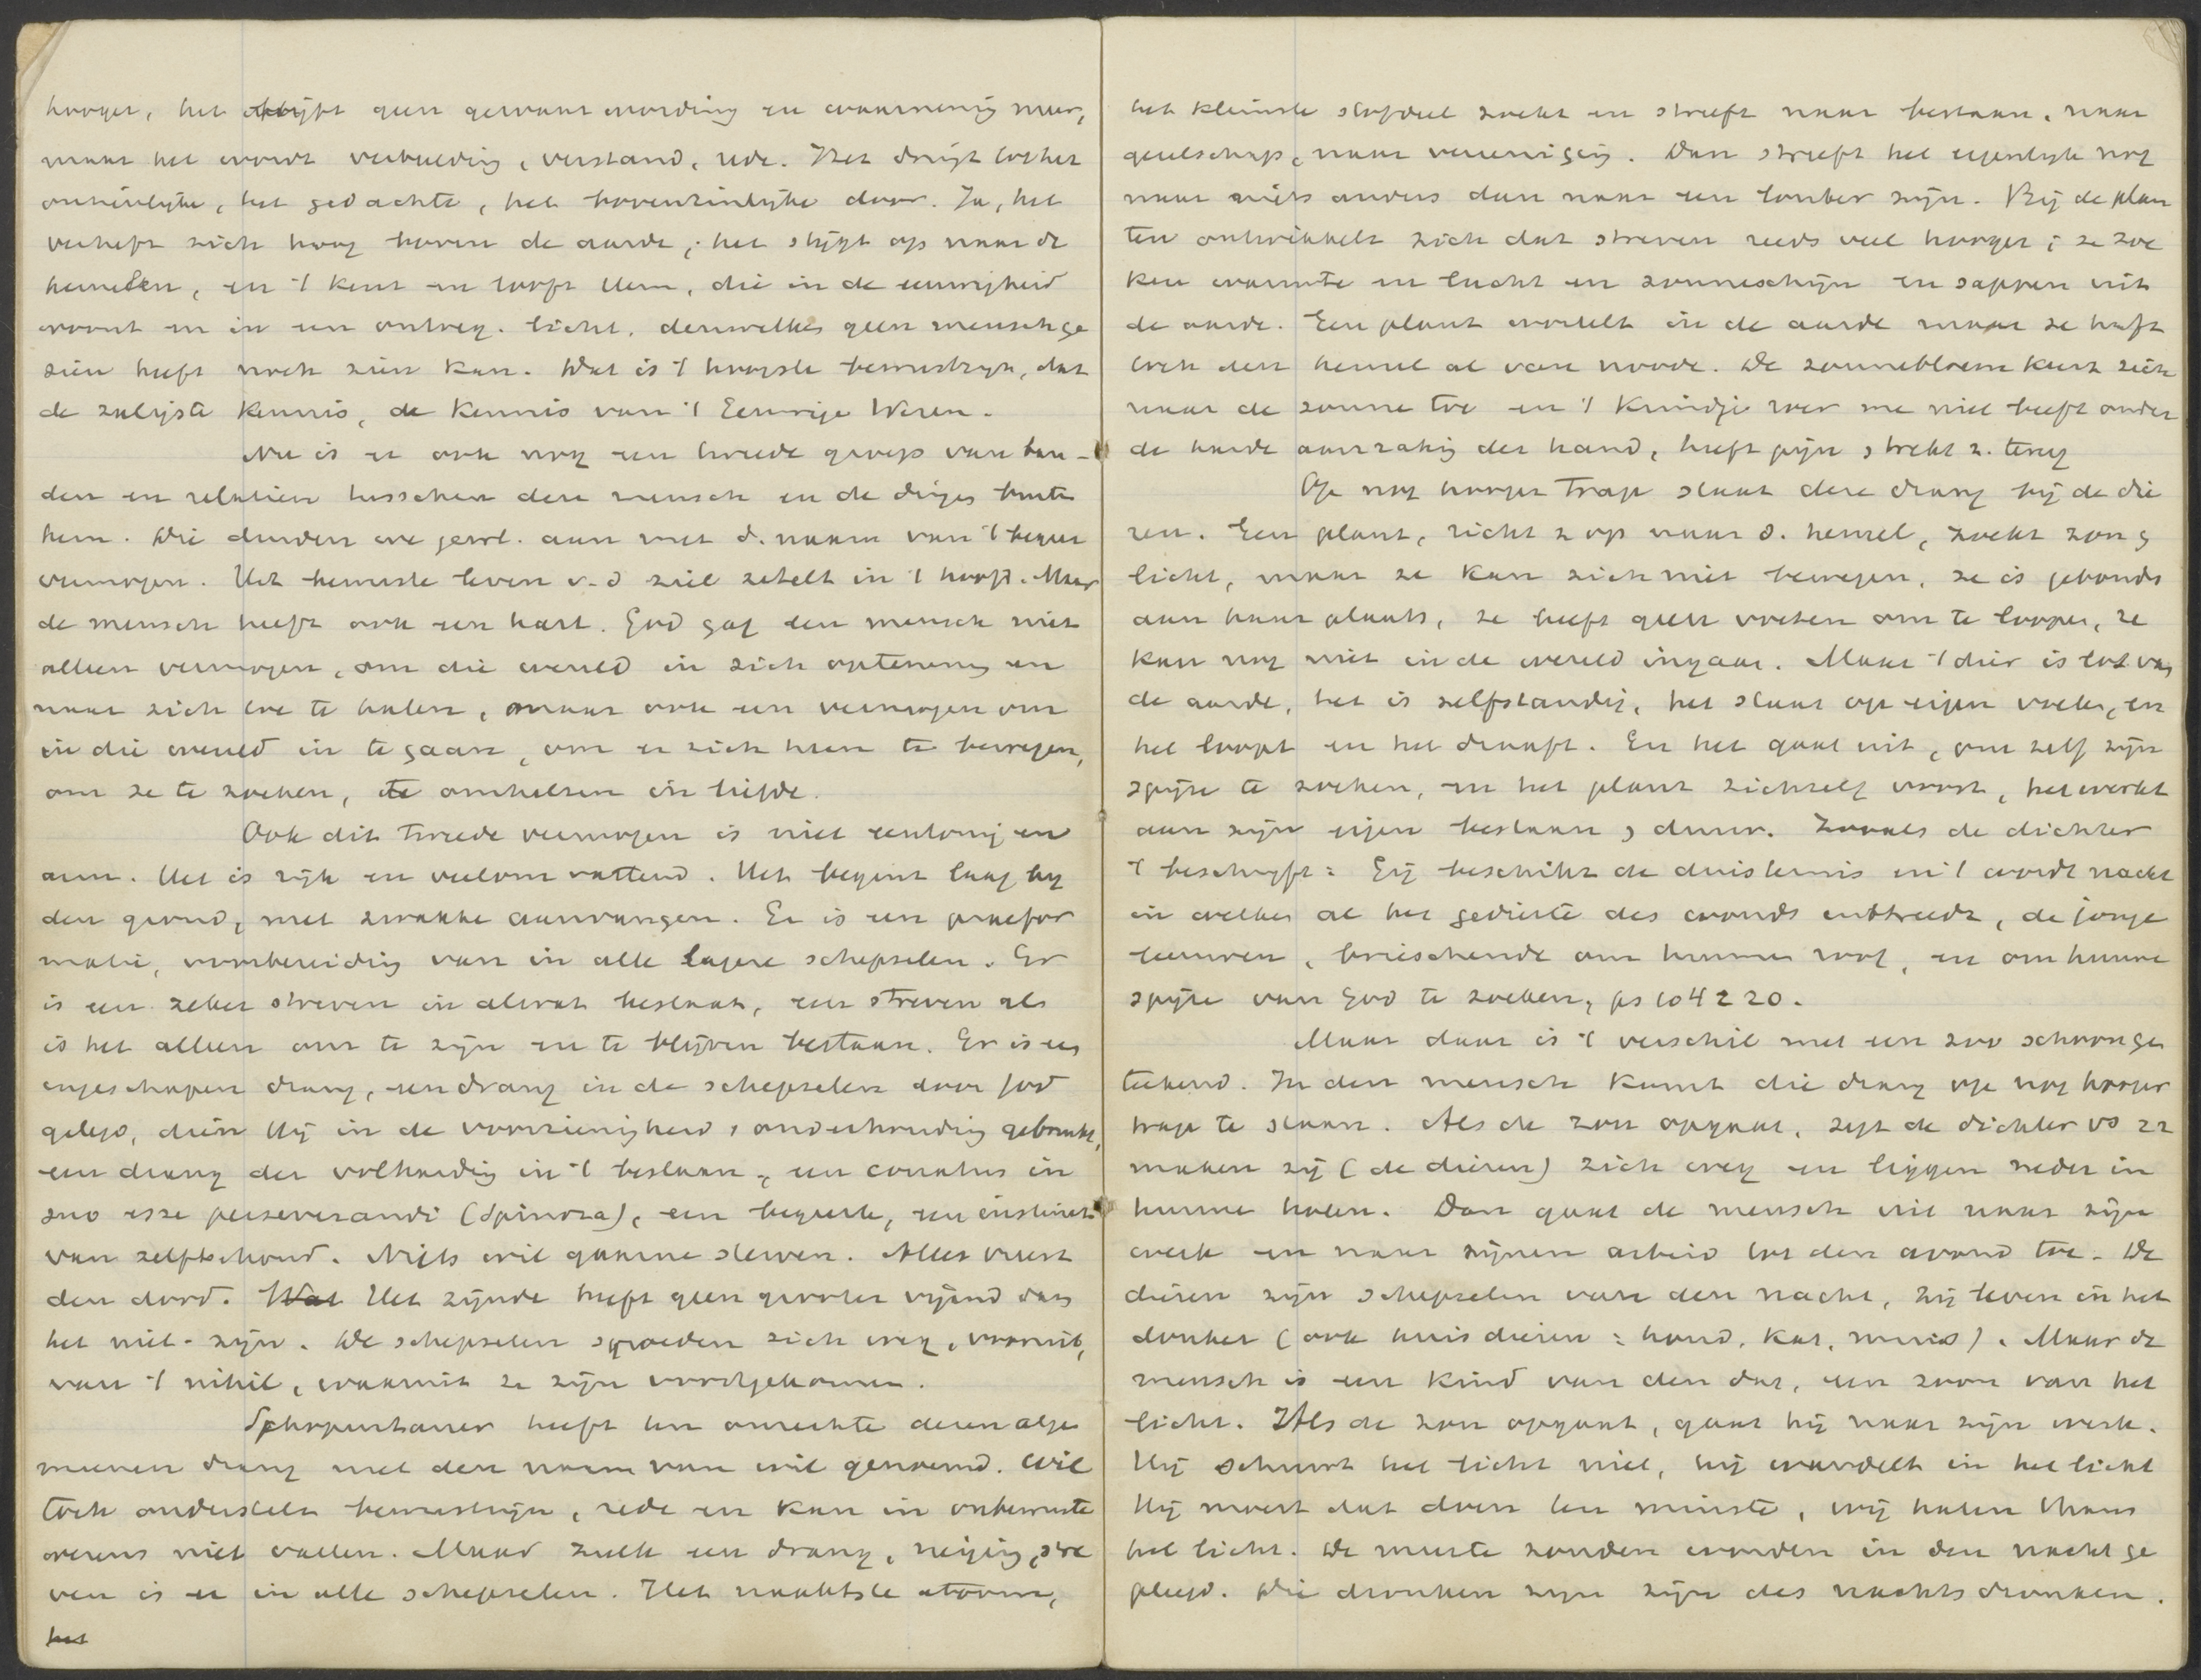 hooger, het blijft geen gewaarwording en waarneming meer,
maar het wordt verbeelding, verstand, rede. Het dringt tot het
onzienlijke, het gedachte, het bovenzinlijke door. Ja, het
verheft zich hoog boven de aarde, het stijgt op naar de
hemelen, en 't kent en looft Hem, die in de eeuwigheid
woont en in een ontoeg. licht, denwelken geen mensch ge
zien heeft noch zien kan. Dat is 't hoogste bewustzijn, dat
de zaligste kennis, de kennis van 't Eeuwige Wezen.
Nu is er ook nog een tweede groep van ban-
den en relatien tusschen den mensch en de dingen buiten
hem. Die duiden we gewl. aan met d. naam van 't begeer
vermogen. Het bewuste leven v. d ziel zetelt in 't hoofd. Maar
de mensch heeft ook een hart. God gaf den mensch niet
alleen vermogen, om die wereld in zich optenemen en
naar zich toe te halen, maar ook een vermogen om
in die wereld in te gaan, om er zich heen te bewegen,
om ze te zoeken, te omhelzen in liefde.
Ook dit tweede vermogen is niet eentonig en
arm. Het is rijk en veelomvattend. Het begint laag by
den grond, met zwakke aanvangen. Er is een praefor
matie, voorbereiding van in alle lagere schepselen. Er
is een zeker streven in alwat bestaat, een streven als
is het alleen om te zijn en te blijven bestaan. Er is een
ingeschapen drang, een drang in de schepselen door God
gelegd, dien Hij in de voorzienigheid, onderhouding gebruikt,
een drang der volharding in 't bestaan, een conatus in
suo esse perseverandi (Spinoza), een begeerte, een instinct
van zelfbehoud. Niets wil gaarne sterven. Alles vreest
den dood. Wat Het zijnde heeft geen grooter vijand dan
het niet-zijn. De schepselen spoeden zich weg, vooruit,
van 't nihil, waaruit ze zijn voortgekomen.
Schopenhauer heeft ten onrechte dezen alge
meenen drang met den naam van wil genoemd. Wil
toch onderstelt bewustzijn, rede en kan in onbewuste
wezens niet vallen. Maar zulk een drang, neiging, stre
ven is er in alle schepselen. Het naaktste atoom,
het
het kleinste stofdeel zoekt en streeft naar bestaan, naar
gezelschap, naar vereeniging. Dan streeft het eigenlijk nog
naar niets anders dan naar een louter zijn. Bij de plan
ten ontwikkelt zich dat streven reeds veel hooger; ze zoe
ken warmte en lucht en zonneschijn en sappen uit
de aarde. Een plant wortelt in de aarde maar ze heeft
toch den hemel al van noode. De zonnebloem keert zich
naar de zonne toe en 't kruidje roer me niet heeft onder
de harde aanraking der hand, heeft pijn, trekt z. terug
Op nog hooger trap staat deze drang bij de die
ren. Een plant, richt z op naar d. hemel, zoekt zon &
licht, maar ze kan zich niet bewegen, ze is gebonden
aan haar plaats, ze heeft geen voeten om te loopen, ze
kan nog niet in de wereld ingaan. Maar 't dier is los van
de aarde, het is zelfstandig, het staat op eigen voeten, en
het loopt en het draaft. En het gaat uit, om zelf zijn
spijze te zoeken, en het plant zichzelf voort, het werkt
aan zijn eigen bestaan & duur. Zooals de dichter
't beschrijft: Gij beschikt de duisternis en 't wordt nacht
in welken al het gedierte des wouds uittreedt, de jonge
leeuwen, briesschende om hunnen roof, en om hunne
spijze van God te zoeken, ps 104 : 20.
Maar daar is 't verschil met een zoo schoon ge
teekend. In den mensch komt die drang op nog hooger
trap te staan. Als de zon opgaat, zegt de dichter vs 22
maken zij (de dieren) zich weg en liggen neder in
hunne holen. Dan gaat de mensch uit naar zijn
werk en naar zijnen arbeid tot den avond toe. De
dieren zijn schepselen van den nacht, zij leven in het
donker (ook huisdieren: hond, kat, muis). Maar de
mensch is een kind van den dag, een zoon van het
licht. Als de zon opgaat, gaat hij naar zijn werk.
Hij schuwt het licht niet, hij wandelt in het licht
Hij moest dat doen ten minste, wij haten thans
het licht. De meeste zonden worden in den nacht ge
pleegd. Die dronken zijn zijn des nachts dronken.